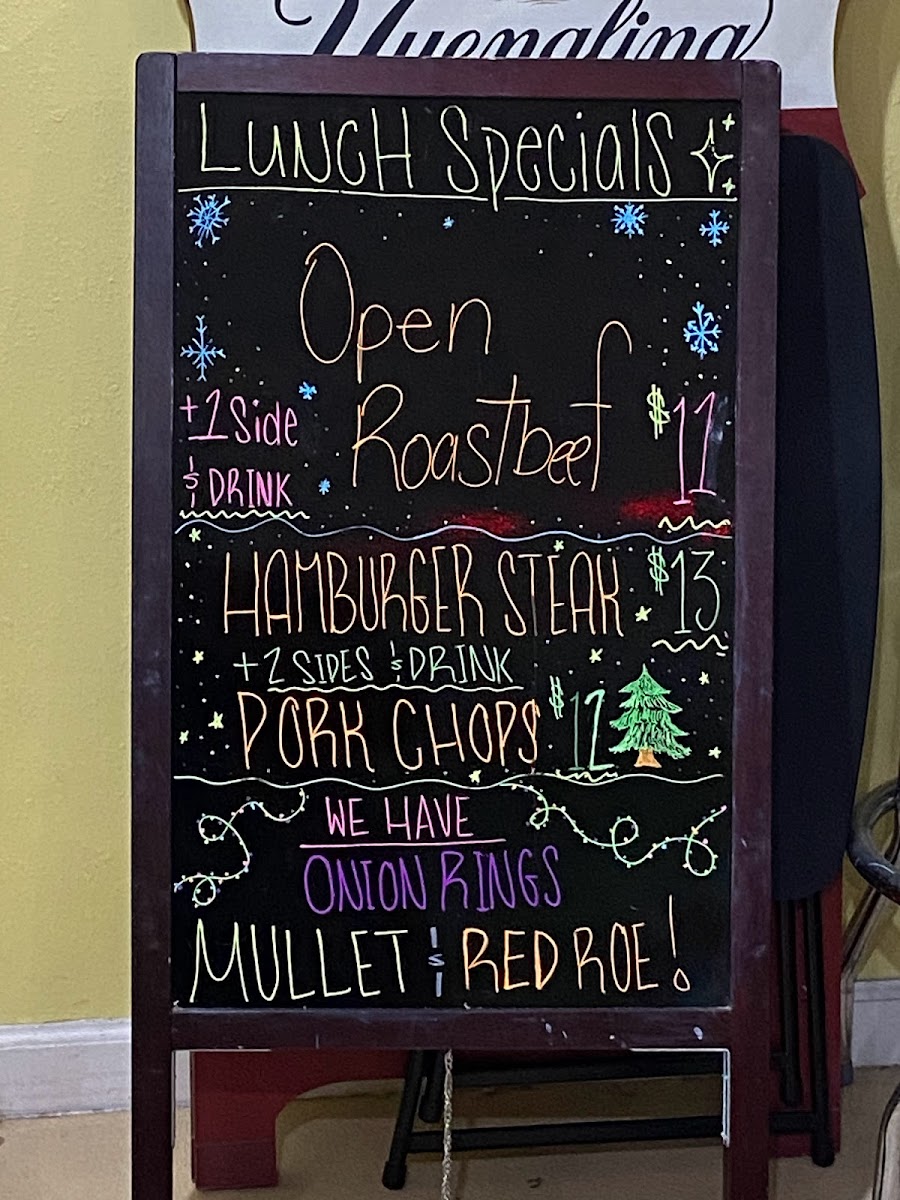 Yuengling
LUNCH Specials
Open
Roastbeef
+1 Side
& DRINK
$11
HAMBURGER STEAK $13
+2 SIDES & DRINK
PORK CHOPS $12
WE HAVE
ONION RINGS
MULLET & RED ROE!